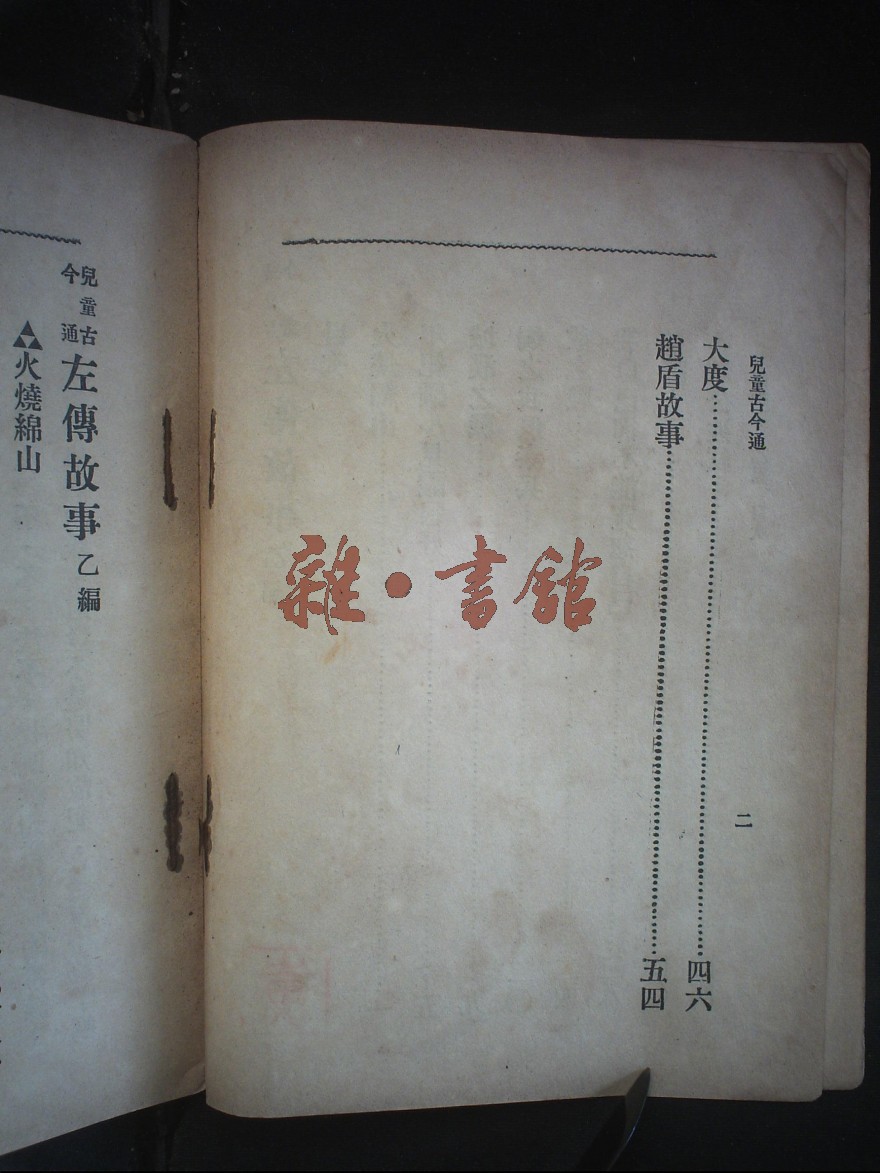 兒童古今通
大度……四六
趙盾故事……五四
二
兒童古今通
左傳故事 乙編
火燒綿山
雜·書館